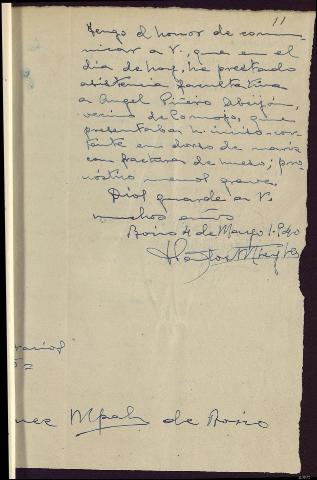 11
Tengo el honor de comu-
nicar a V., que en el
día de hoy, he prestado
asistencia facultativa
a Angel Piñeiro
vecino de Lomojo, que
presentaba h. inciso-cor-
tante en dorso de nariz
con fractura de hueso; pro-
nóstico menos grave.
Dios guarde a V.
muchos años
Boiro 4 de Marzo 1.940
nez Mpal de Boiro